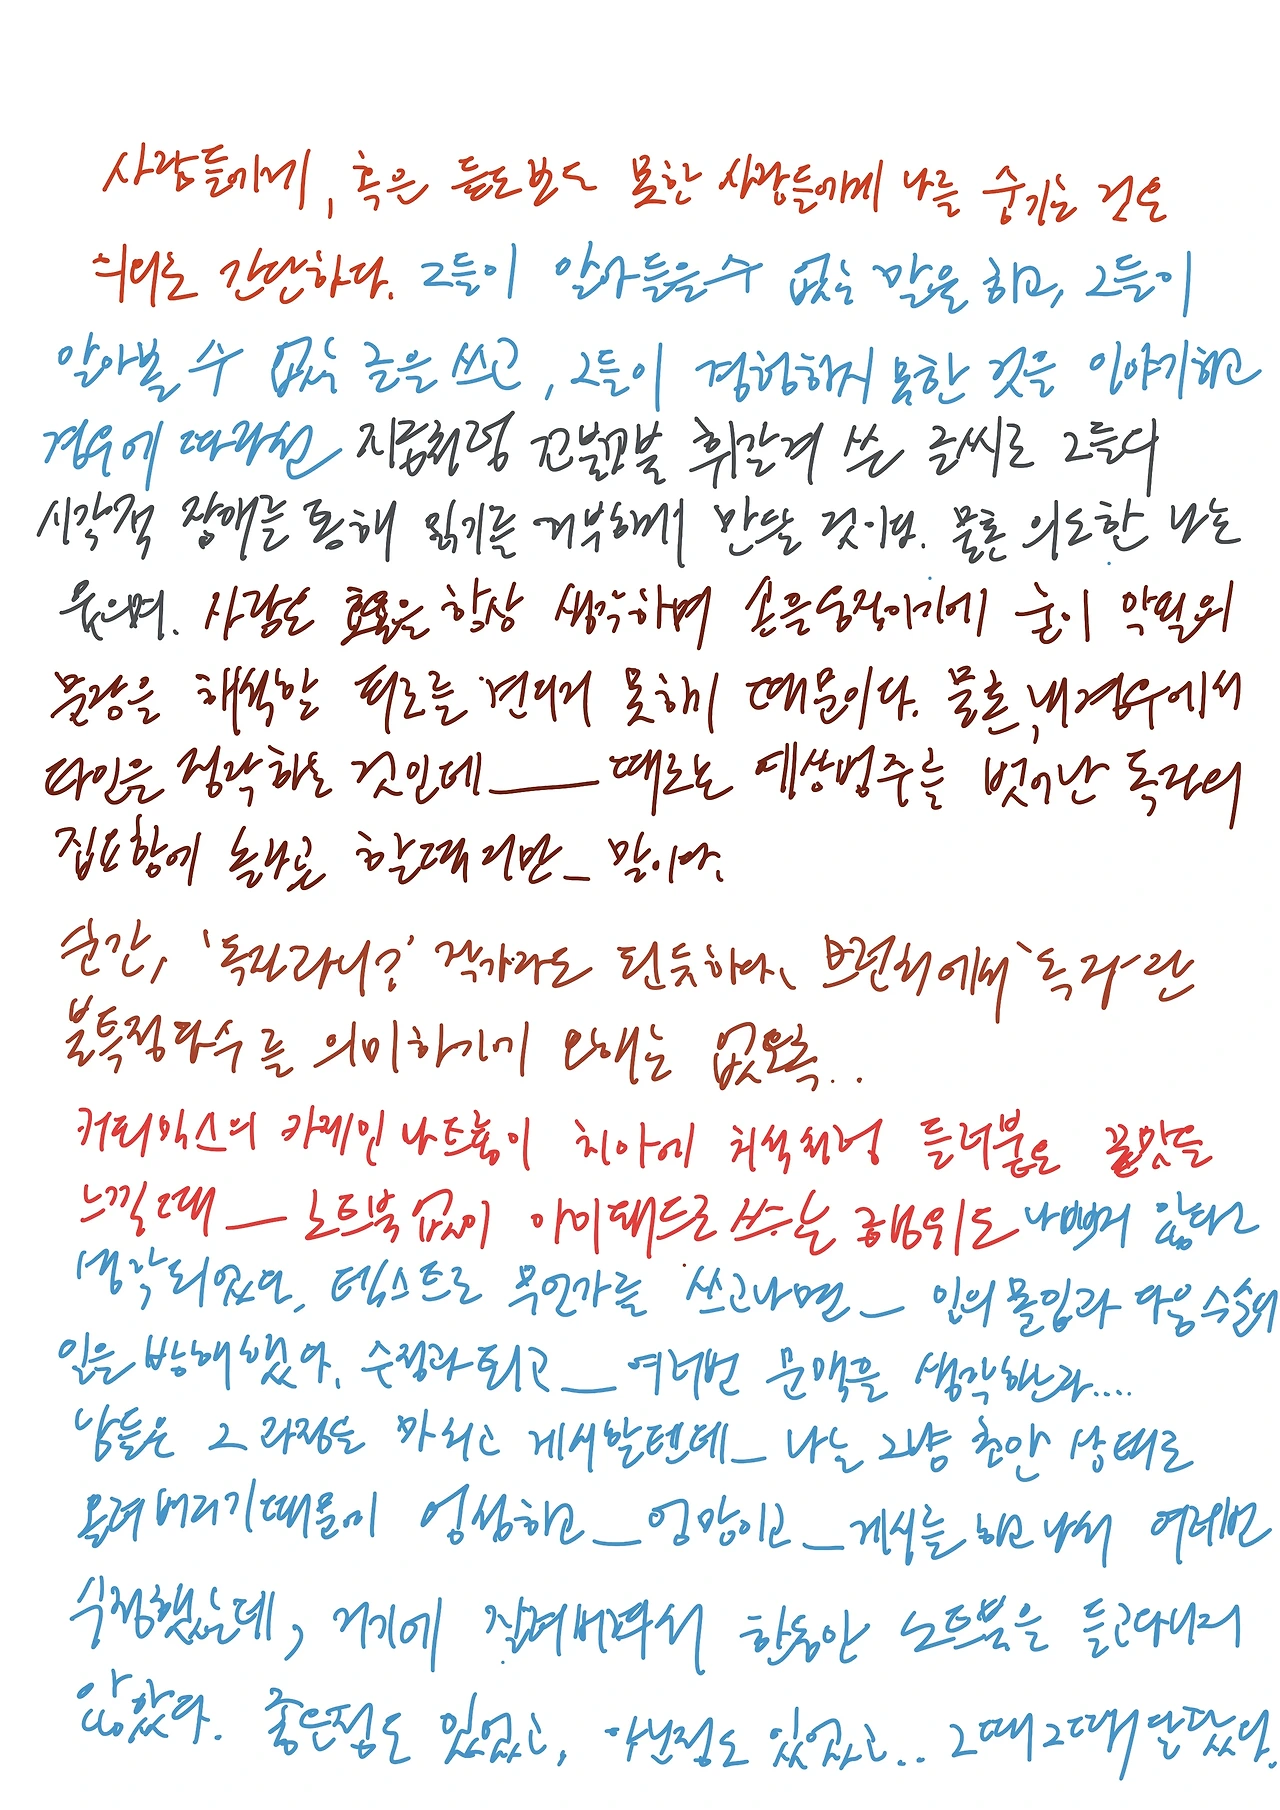 사람들에게, 혹은 들도보도 못한 사람들에게 나를 숨기는 것은
의외로 간단하다. 그들이 알아들을 수 없는 말을 하고, 그들이
알아볼 수 없는 글을 쓰고, 그들이 경험하지 못한 것을 이야기하고
경우에 따라선 지금처럼 꼬불꼬불 휘갈겨 쓴 글씨로 그들이
시각적 장애를 통해 읽기를 거부하게 만들 것이며. 물론 의도한 나는
웃으며. 사람은 효율을 항상 생각하며 손을 움직이기에 눈이 악필의
문장을 해석할 피로를 견디지 못하기 때문이다. 물론, 내 경우에서
타인을 정락하는 것인데 ― 때로는 예상범주를 벗어난 독자의
집요함에 놀라곤 할때지만_ 말이다.
순간, '독자라니?' 작가라도 된듯하다. 브런치에서 '독자'란
불특정다수를 의미하기에 오해는 없도록..
커피믹스의 카제인나트륨이 치아에 치석처럼 들러붙은 끝맛을
느낄때 ― 노트북 없이 아이패드로 쓰는 행위도 나쁘지 않다고
생각되었다. 텍스트로 무언가를 쓰고나면 ― 인의 몰입과 다음 수술의
일을 방해했다. 수정과 퇴고 ― 여러번 문맥을 생각한다....
남들은 그 과정을 마치고 게시할텐데_ 나는 그냥 초안 상태로
올려버리기때문이 엉성하고 _ 엉망이고 _ 게시를 하고나서 여러번
수정했는데, 거기에 질려버려서 한동안 노트북을 들고다니지
않았다. 좋은점도 있었고, 아닌점도 있었고.. 그때그때 달랐다.